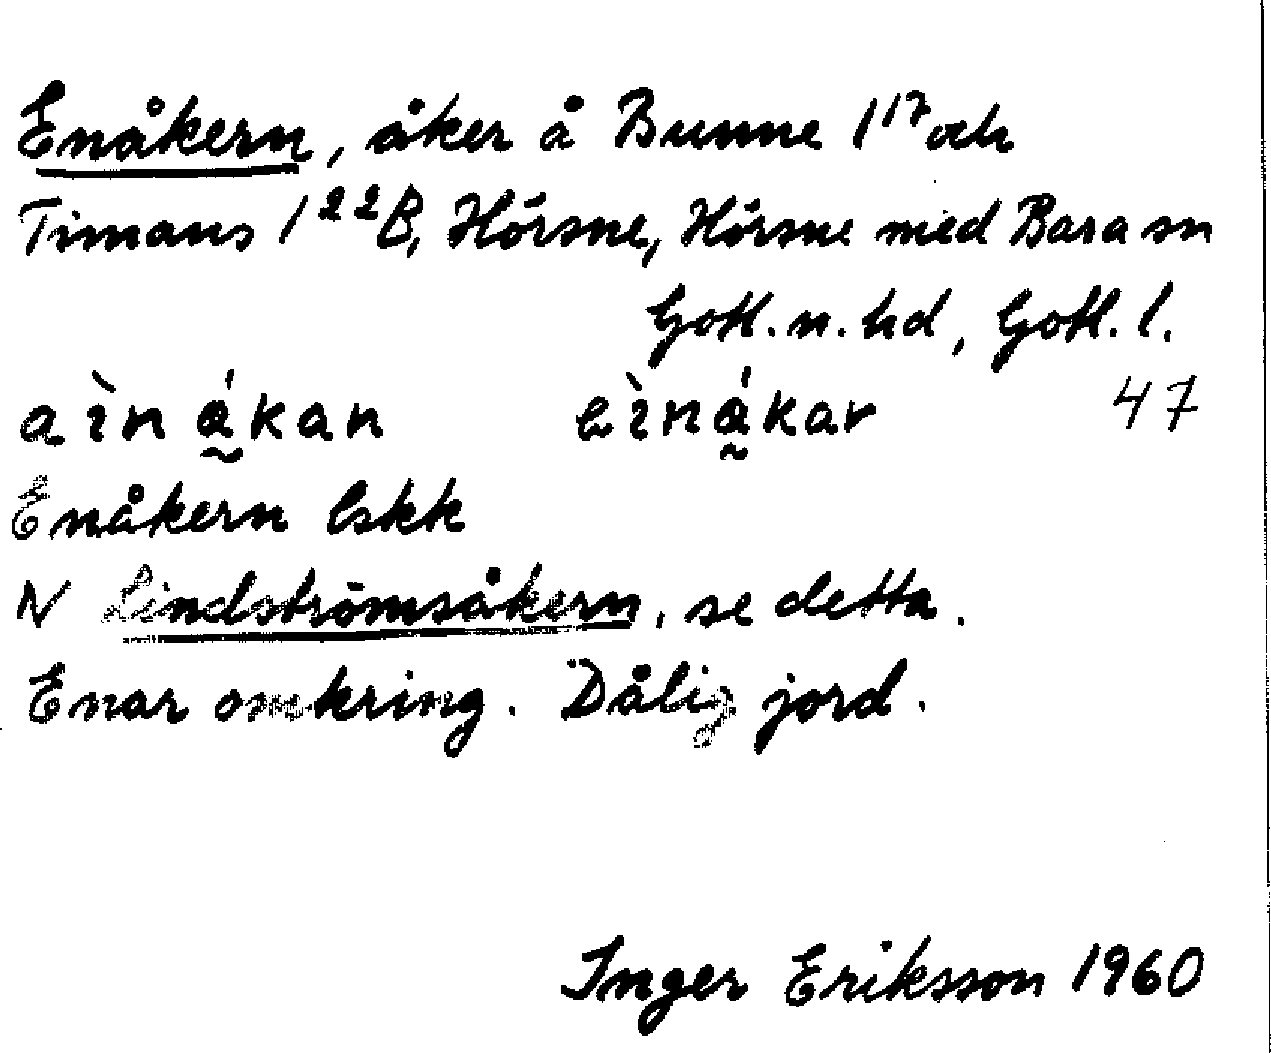 Enåkern, åker å Bunne 1¹⁷ och
Timans 1²²B, Hörsne, Hörsne med Bara sn
Gotl. n. hd, Gotl. l.
aìn á̰kan eìná̰kar 47
Enåkern lskk
N Lindströmsåkern, se detta.
Enar omkring. Dålig jord.
Inger Eriksson 1960